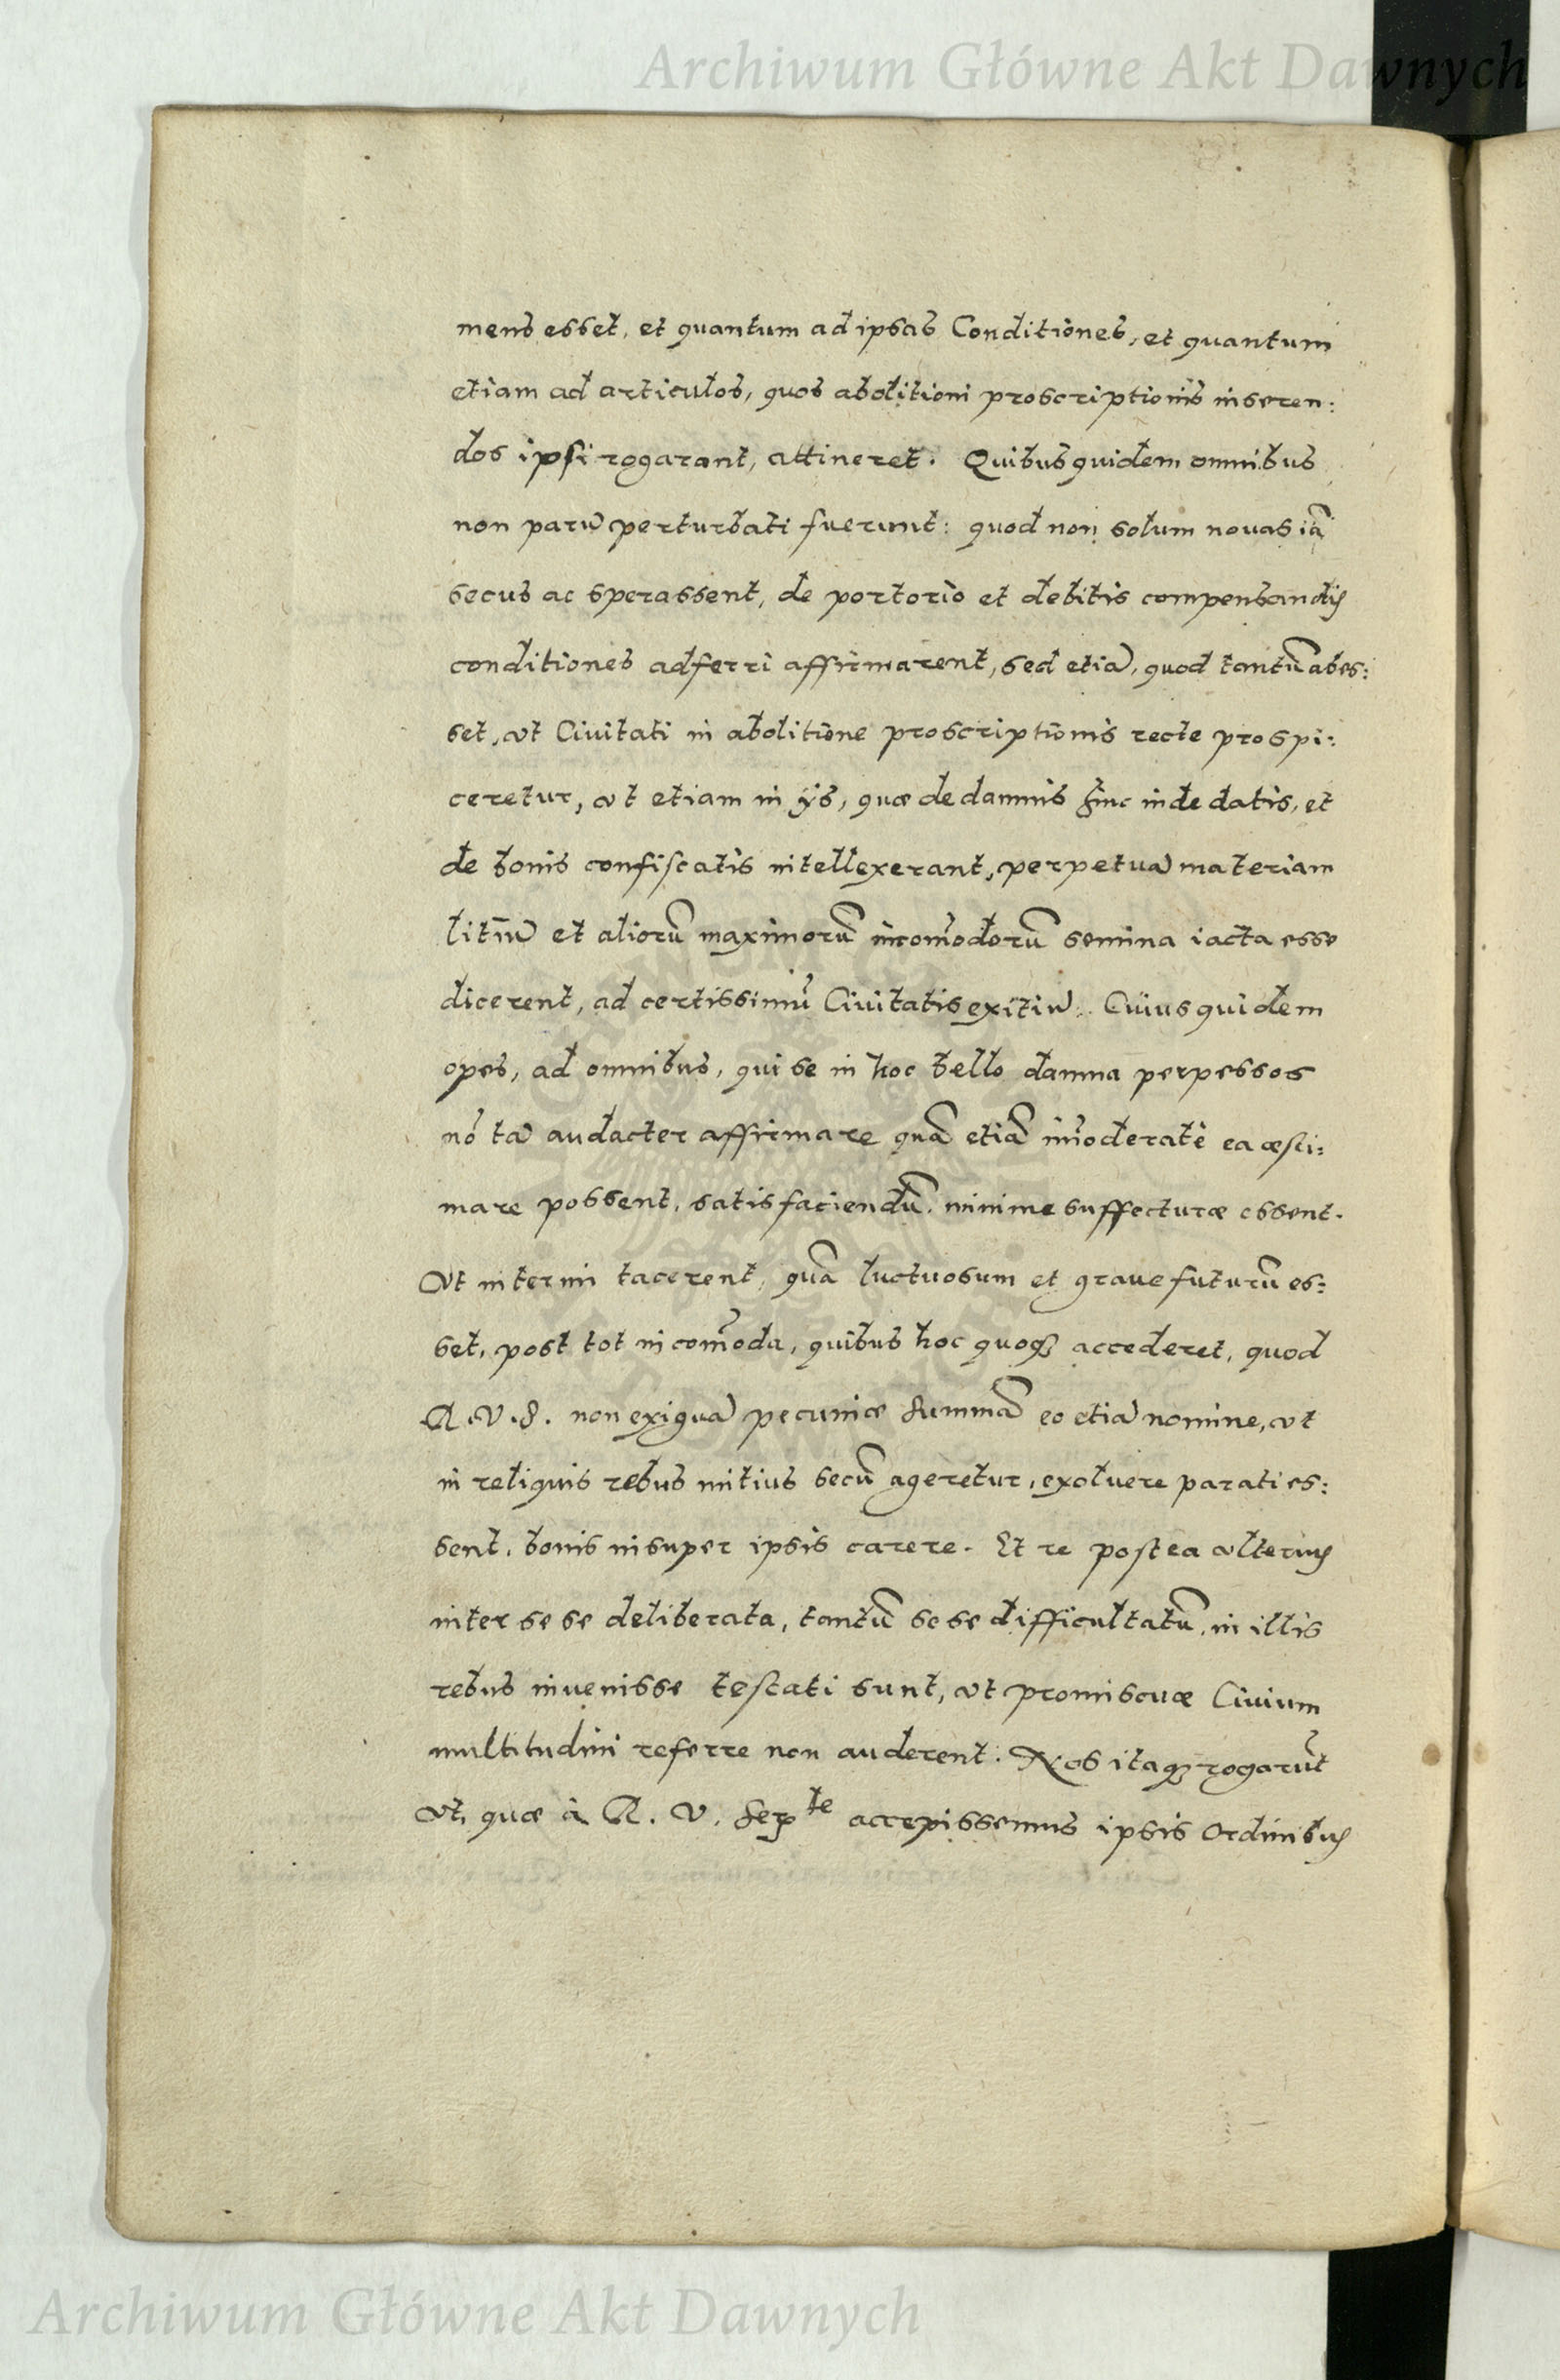 Archiwum Główne Akt Dawnych
mens esset, et quantum ad ipsas Conditiones, et quantum
etiam ad articulos, quos abolitioni proscriptionis inseren:
dos ipsi rogarant, attineret. Quibus quidem omnibus
non parũ perturbati fuerunt: quod non solum nouas iã
secus ac sperassent, de portorio et debitis compensandis
conditiones adferri affirmarent, sed etiã, quod tantũ abes:
set, ut Ciuitati in abolitione proscriptionis recte prospi:
ceretur, ut etiam in ijs, quæ de damnis hinc inde datis, et
de bonis confiscatis intellexerant, perpetuã materiam
litiũ et aliorũ maximorũ incom̃odorũ semina iacta esse
dicerent, ad certissimũ Ciuitatis exitiũ. Cuius quidem
opes, ad omnibus, qui se in hoc bello damna perpessos
nõ tã audacter affirmare quã etiã im̃oderatè ea æsti:
mare possent, satisfaciendũ, minime suffecturæ essent.
Ut interim tacerent, quã luctuosum et graue futurũ es:
set, post tot incom̃oda, quibus hoc quoqꝫ accederet, quod
R. V. S. non exiguã pecuniæ summã eo etiã nomine, ut
in reliquis rebus mitius secũ ageretur, exoluere parati es:
sent, bonis insuper ipsis carere. Et re postea ulterius
inter se se deliberata, tantũ se se difficultatũ, in illis
rebus inuenisse testati sunt, ut promiscuæ Ciuium
multitudini referre non auderent. Nos itaqꝫ rogarũt
ut, quæ à R. V. Serᵗᵉ accepissemus ipsis Ordinibus
Archiwum Główne Akt Dawnych